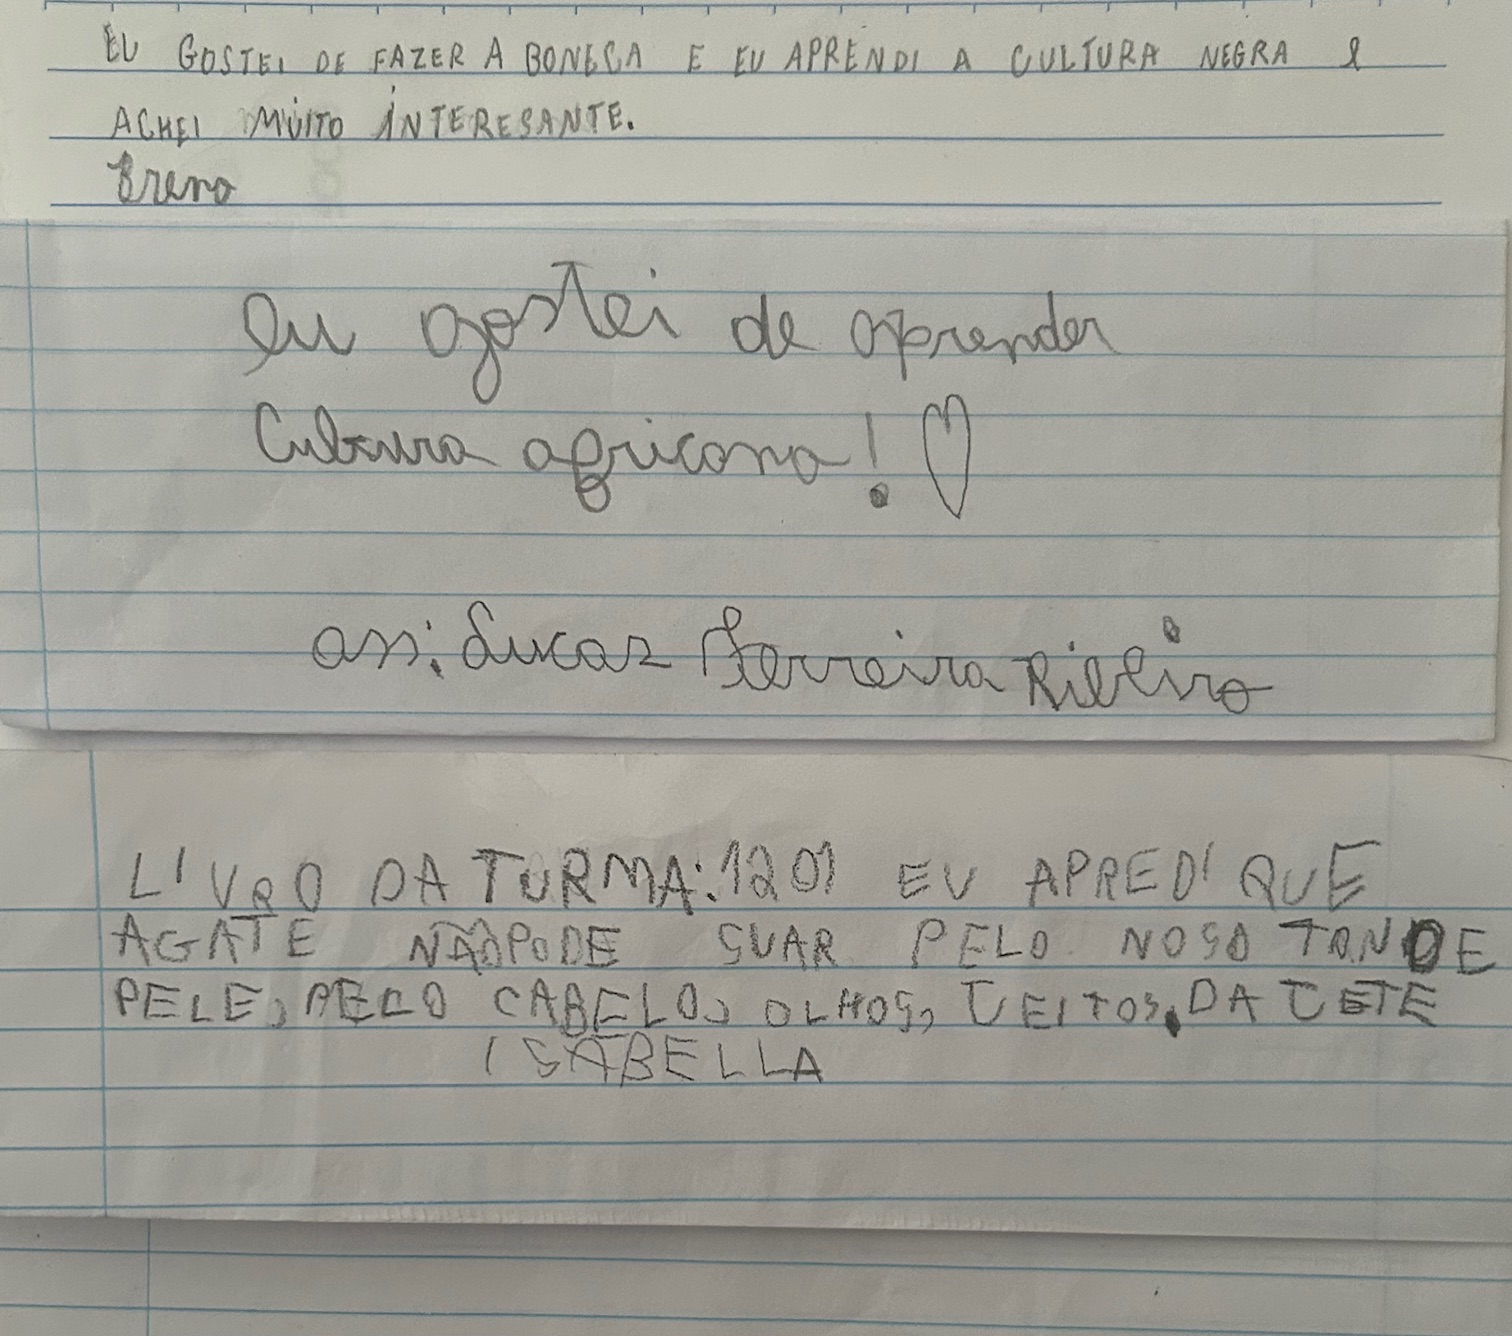 EU GOSTEI DE FAZER A BONECA E EU APRENDI A CULTURA NEGRA e
ACHEI MUITO INTERESANTE.
Breno
Eu gostei de aprender
Cultura africana!
ass: Lucas Ferreira Ribeiro
LIVRO DA TURMA:1201 EU APREDI QUE
AGATE NÃOPODE SUAR PELO NOSO TONDE
PELE, PELO CABELO, OLHOS, JEITOS, DA JETE
ISABELLA